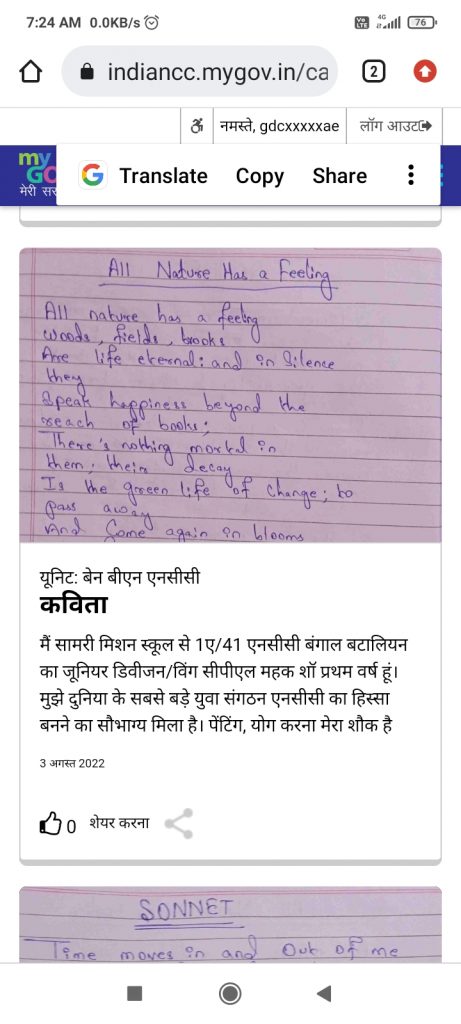 7:24 AM 0.0KB/s 4G 76
indiancc.mygov.in/ca 2
नमस्ते, gdcxxxxxae लॉग आउट
my
GO
मेरी सर
Translate Copy Share
All Nature Has a Feeling
All nature has a feeling
woods, fields, brooks
Are life eternal: and in Silence
they
Speak happiness beyond the
reach of books;
There's nothing mortal in
them; their decay
Is the green life of change; to
pass away
And Come again in blooms
यूनिट: बेन बीएन एनसीसी
कविता
मैं सामरी मिशन स्कूल से 1ए/41 एनसीसी बंगाल बटालियन
का जूनियर डिवीजन/विंग सीपीएल महक शॉ प्रथम वर्ष हूं।
मुझे दुनिया के सबसे बड़े युवा संगठन एनसीसी का हिस्सा
बनने का सौभाग्य मिला है। पेंटिंग, योग करना मेरा शौक है
3 अगस्त 2022
0 शेयर करना
SONNET
Time moves in and Out of me